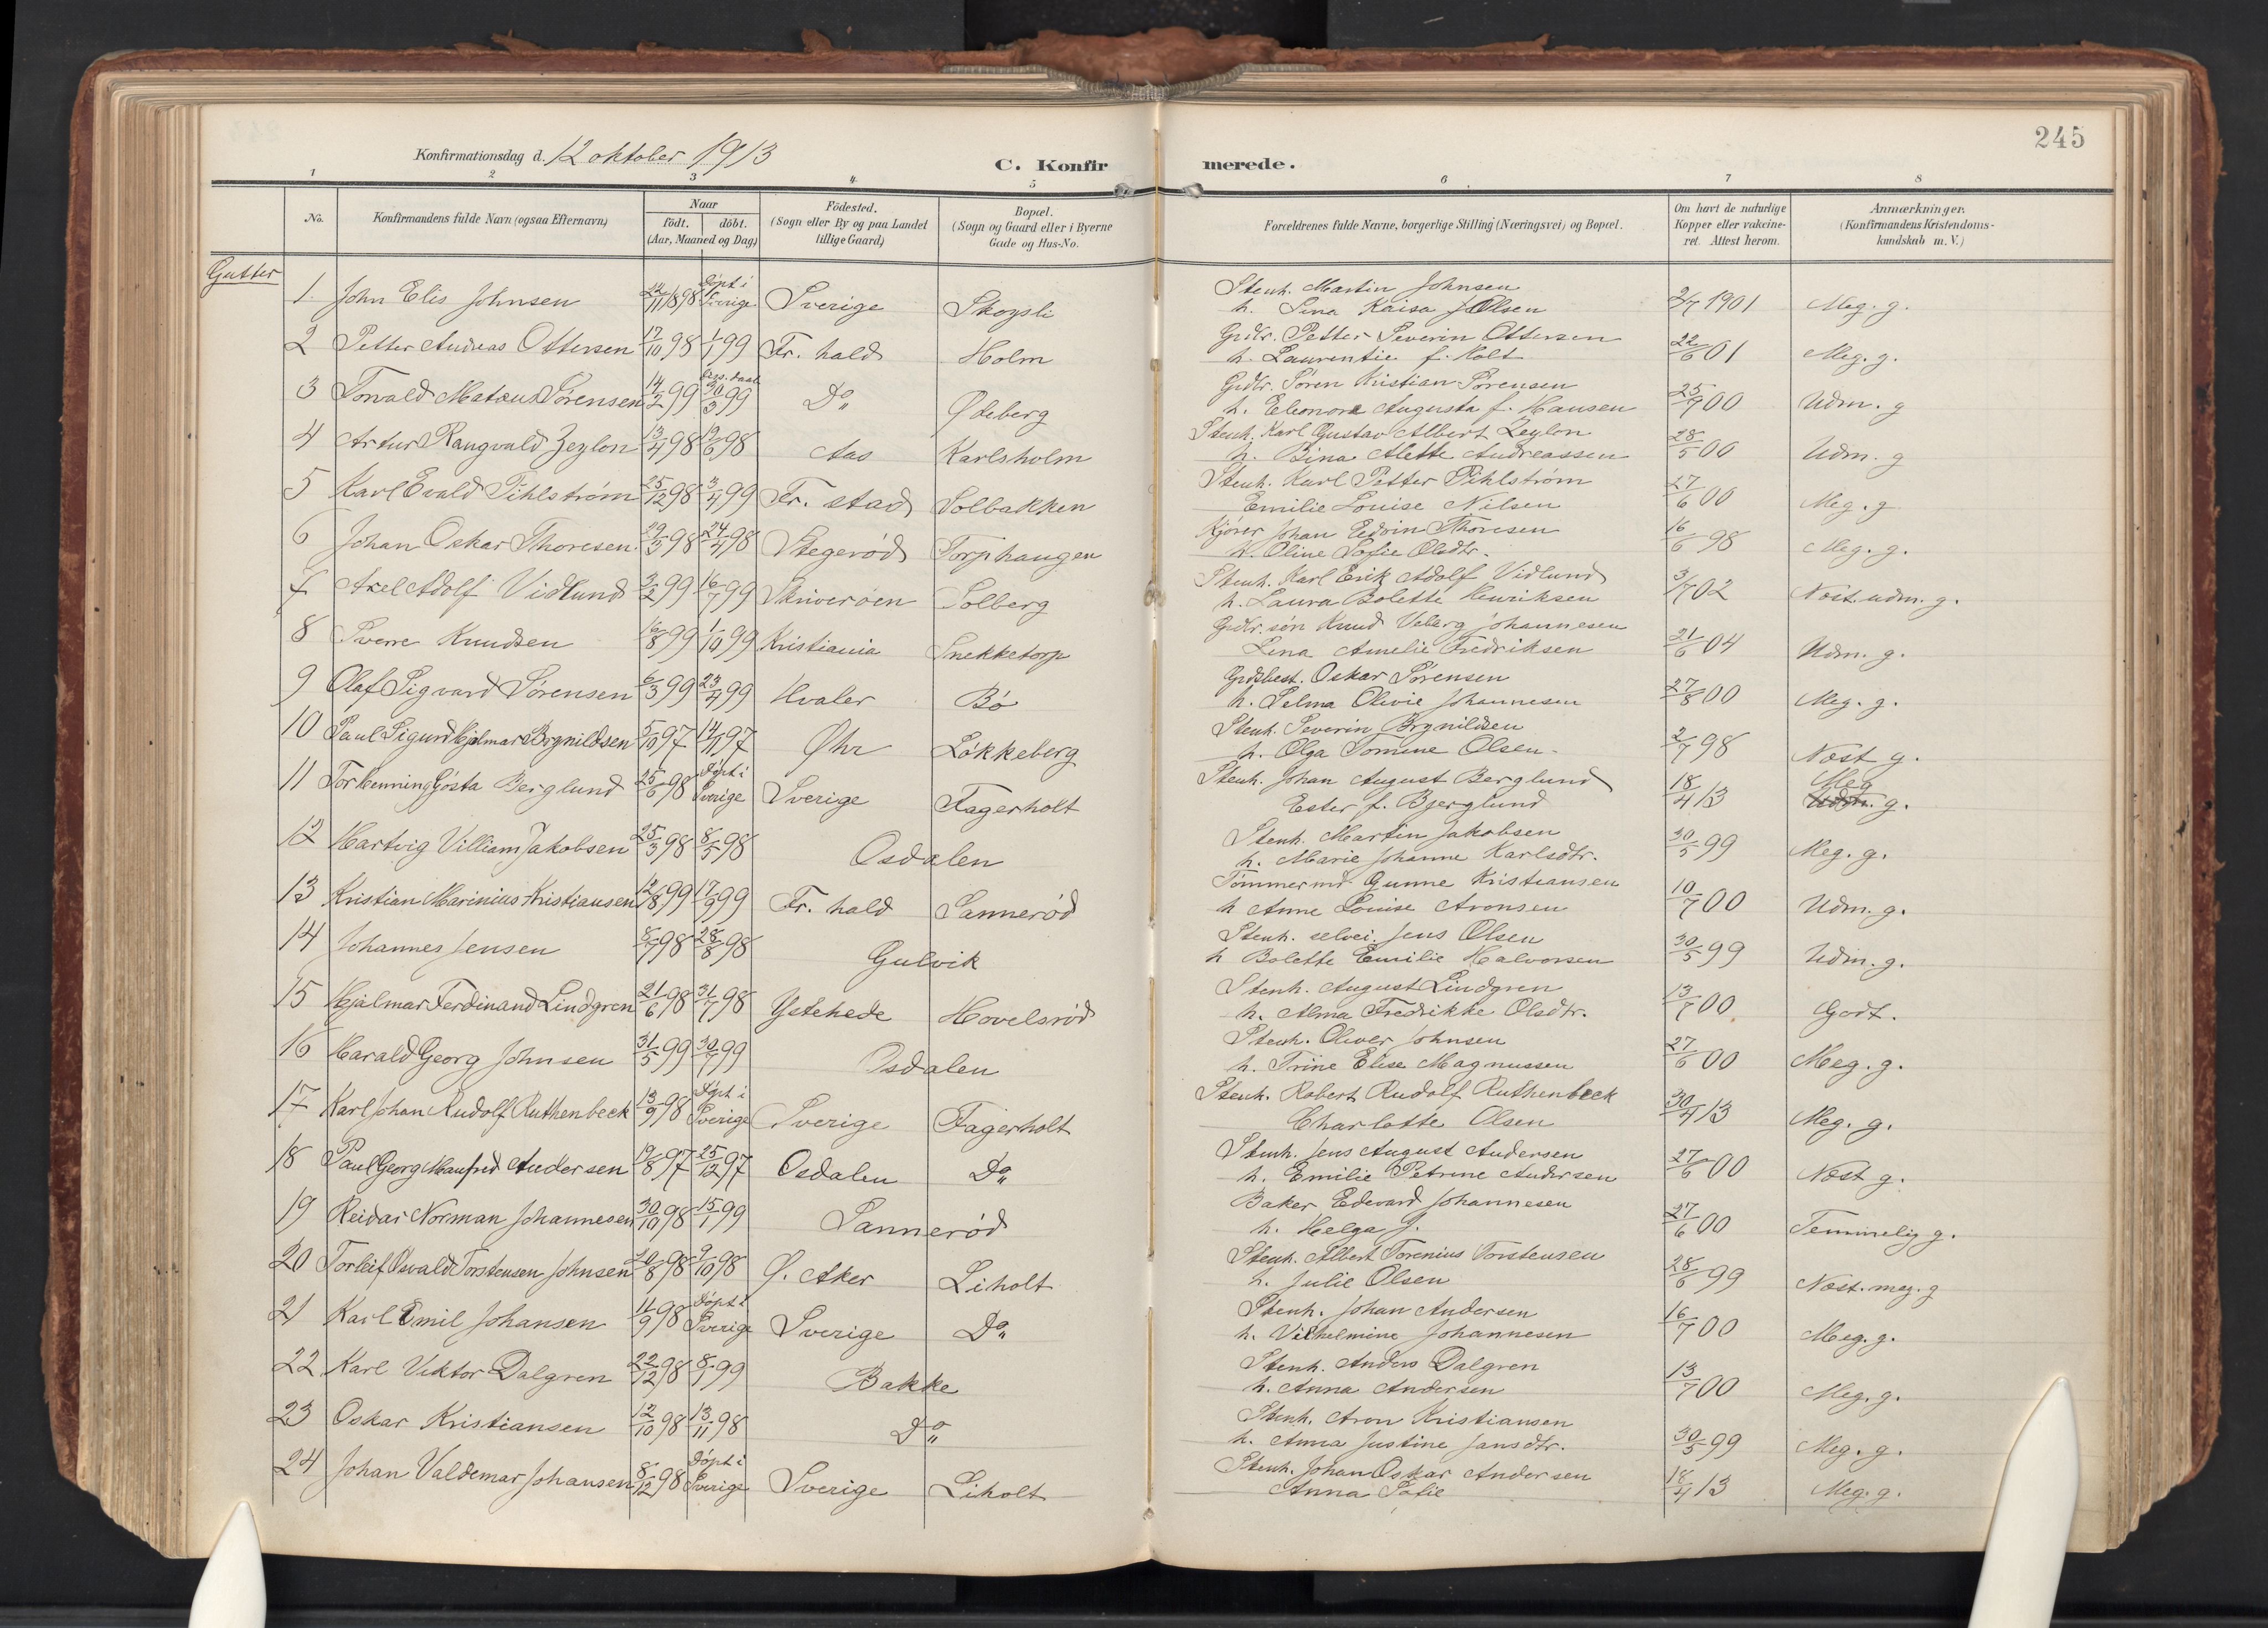 245
Konfirmationsdag d. 12 oktober 1913
C. Konfirmerede.
1 2 3 4 5 6 7 8
No.
Konfirmandens fulde Navn (ogsaa Efternavn)
Naar
födt. döbt.
(Aar, Maaned og Dag)
Födested.
(Sogn eller By og paa Landet
tillige Gaard)
Bopæl.
(Sogn og Gaard eller i Byerne
Gade og Hus-No.
Forældrenes fulde Navne, borgerlige Stilling (Næringsvei) og Bopæl.
Om havt de naturlige
Kopper eller vakcine-
ret. Attest herom.
Anmærkninger.
(Konfirmandens Kristendoms-
kundskab m. V.)
Gutter
1. John Elis Johnsen 22/11 1898 Döpt i Sverige Sverige Skogsli Stenh. Martin Johnsen 2/7 1901 Meg. g.
h. Lina Kaisa Olsen
2 Petter Andreas Ottersen 17/10 98 1/1 99 Fr. hald Holm Grdbr. Petter Severin Ottersen 22/6 01 Meg. g.
h. Laurentie f. Holt
3 Torvald Mataus Sörensen 14/2 99 30/3 99 Do Ödeberg Grdbr. Sören Kristian Sörensen 25/9 00 Udm. g
h. Eleonora Augusta f. Hansen
4 Artur Rangvald Zeylon 13/4 98 19/6 98 Aas Karlsholm Stenh. Karl Gustav Albert Zeylon 28/5 00 Udm. g
h. Bina Alette Andreassen
5 Karl Evald Pihlström 25/12 98 3/4 99 Fr. stad Solbakken Stenh. Karl Petter Pihlström 27/6 00 Meg. g
Emilie Louise Nilsen
6 Johan Oskar Thoresen 29/3 98 24/4 98 Stegeröd Torphaugen Kjörer Johan Edvin Thoresen 16/6 98 Meg. g.
h. Oline Sofie Olsdtr.
7 Axel Adolf Vidlund 3/2 99 16/7 99 Skriveröen Solberg Stenh. Karl Erik Adolf Vidlund 3/7 02 Næst. udm. g.
h. Laura Bolette Henriksen
8 Sverre Knudsen 16/8 99 1/10 99 Kristiania Snekketorp Grdbr. sön Knud Veberg Johannesen 21/6 04 Udm. g.
Lina Amelie Fredriksen
9 Olaf Sigvard Sörensen 6/3 99 23/4 99 Hvaler Bö Grdsbest. Oskar Sörensen 27/8 00 Meg. g.
h. Selma Olivie Johannesen
10 Paul Sigurd Hjelmar Brynildsen 5/10 97 14/11 97 Öhr Lökkeberg Stenh. Severin Brynildsen 2/7 98 Næst g.
h. Olga Tomine Olsen
11 Tor Henning Gösta Berglund 25/6 98 Döpt i Sverige Sverige Fagerholt Stenh. Johan August Berglund 18/4 13 Meg g.
Ester f. Bjerglund
12 Hartvig Villiam Jakobsen 25/3 98 8/5 98 Osdalen Stenh. Martin Jakobsen 30/5 99 Meg. g.
h. Marie Johanne Karlsdtr.
13 Kristian Marinius Kristiansen 12/8 99 17/9 99 Fr. hald Sanneröd Tömmermd. Gunne Kristiansen 10/7 00 Udm. g.
h Anne Louise Aronsen
14 Johannes Jensen 8/7 98 28/8 98 Gulvik Stenh. selvei. Jens Olsen 30/5 99 Udm. g.
h Bolette Emilie Halvorsen
15 Hjalmar Ferdinand Lindgren 21/6 98 31/7 98 Ystehede Hovelsröd Stenh. August Lindgren 13/7 00 Godt.
h. Alma Fredrikke Olsdtr.
16 Harald Georg Johnsen 31/5 99 30/7 99 Osdalen Stenh. Oliver Johnsen 27/6 00 Meg. g.
h. Trine Elise Magnussen
17 Karl Johan Rudolf Ruthenbeck 13/9 98 Döpt i Sverige Sverige Fagerholt Stenh. Robert Rudolf Ruthenbeck 30/4 13 Meg. g.
Charlotte Olsen
18 Paul Georg Manfred Andersen 19/8 97 25/12 97 Osdalen Do Stenh. Jens August Andersen 27/6 00 Næst g.
h. Emilie Petrine Andersen
19 Reidar Norman Johannesen 30/10 98 15/1 99 Sanneröd Baker Edevard Johannesen 27/6 00 Temmelig g.
h. Helga J.
20 Torleif Osvald Torstensen Johnsen 20/8 98 9/10 98 Ö. Aker Liholt Stenh. Albert Torenius Torstensen 28/6 99 Næst. meg. g
h. Julie Olsen
21 Karl Emil Johansen 11/9 98 Döpt i Sverige Sverige Do Stenh. Johan Andersen 16/7 00 Meg. g.
h. Vilhelmine Johannesen
22 Karl Viktor Dalgren 22/12 98 8/1 99 Bakke Stenh. Anders Dalgren 13/7 00 Meg. g.
h. Anna Andersen
23 Oskar Kristiansen 12/10 98 13/11 98 Do Stenh. Aron Kristiansen 30/5 99 Meg. g.
h. Anna Justine Jansdtr.
24 Johan Valdemar Johansen 8/12 98 Döpt i Sverige Sverige Liholt Stenh. Johan Oskar Andersen 18/4 13 Meg. g.
Anna Sofie